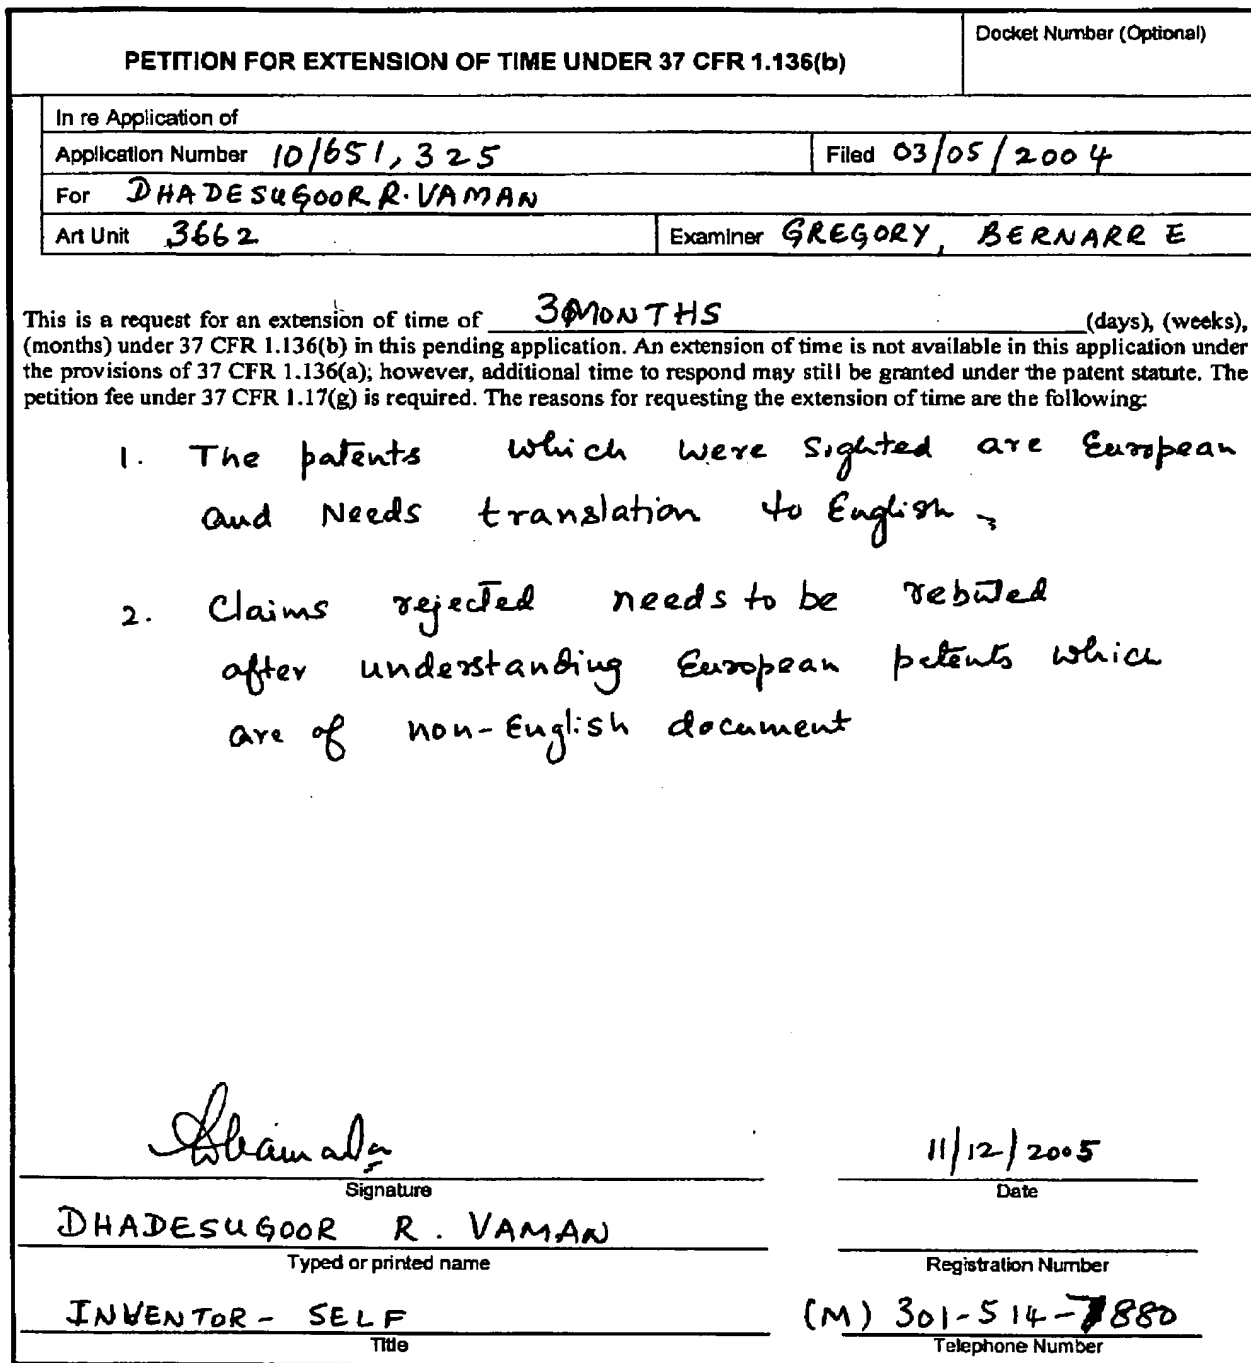 Docket Number (Optional)
PETITION FOR EXTENSION OF TIME UNDER 37 CFR 1.136(b)
In re Application of
Application Number 10/651,325 Filed 03/05/2004
For DHADESUGOOR R. VAMAN
Art Unit 3662 Examiner GREGORY, BERNARR E
This is a request for an extension of time of 3 MONTHS (days), (weeks),
(months) under 37 CFR 1.136(b) in this pending application. An extension of time is not available in this application under
the provisions of 37 CFR 1.136(a); however, additional time to respond may still be granted under the patent statute. The
petition fee under 37 CFR 1.17(g) is required. The reasons for requesting the extension of time are the following:
1. The patents which were sighted are European
and Needs translation to English.
2. Claims rejected needs to be rebuted
after understanding European petents which
are of non-English document
11/12/2005
Signature Date
DHADESUGOOR R. VAMAN
Typed or printed name Registration Number
INVENTOR - SELF (M) 301-514-7880
Title Telephone Number